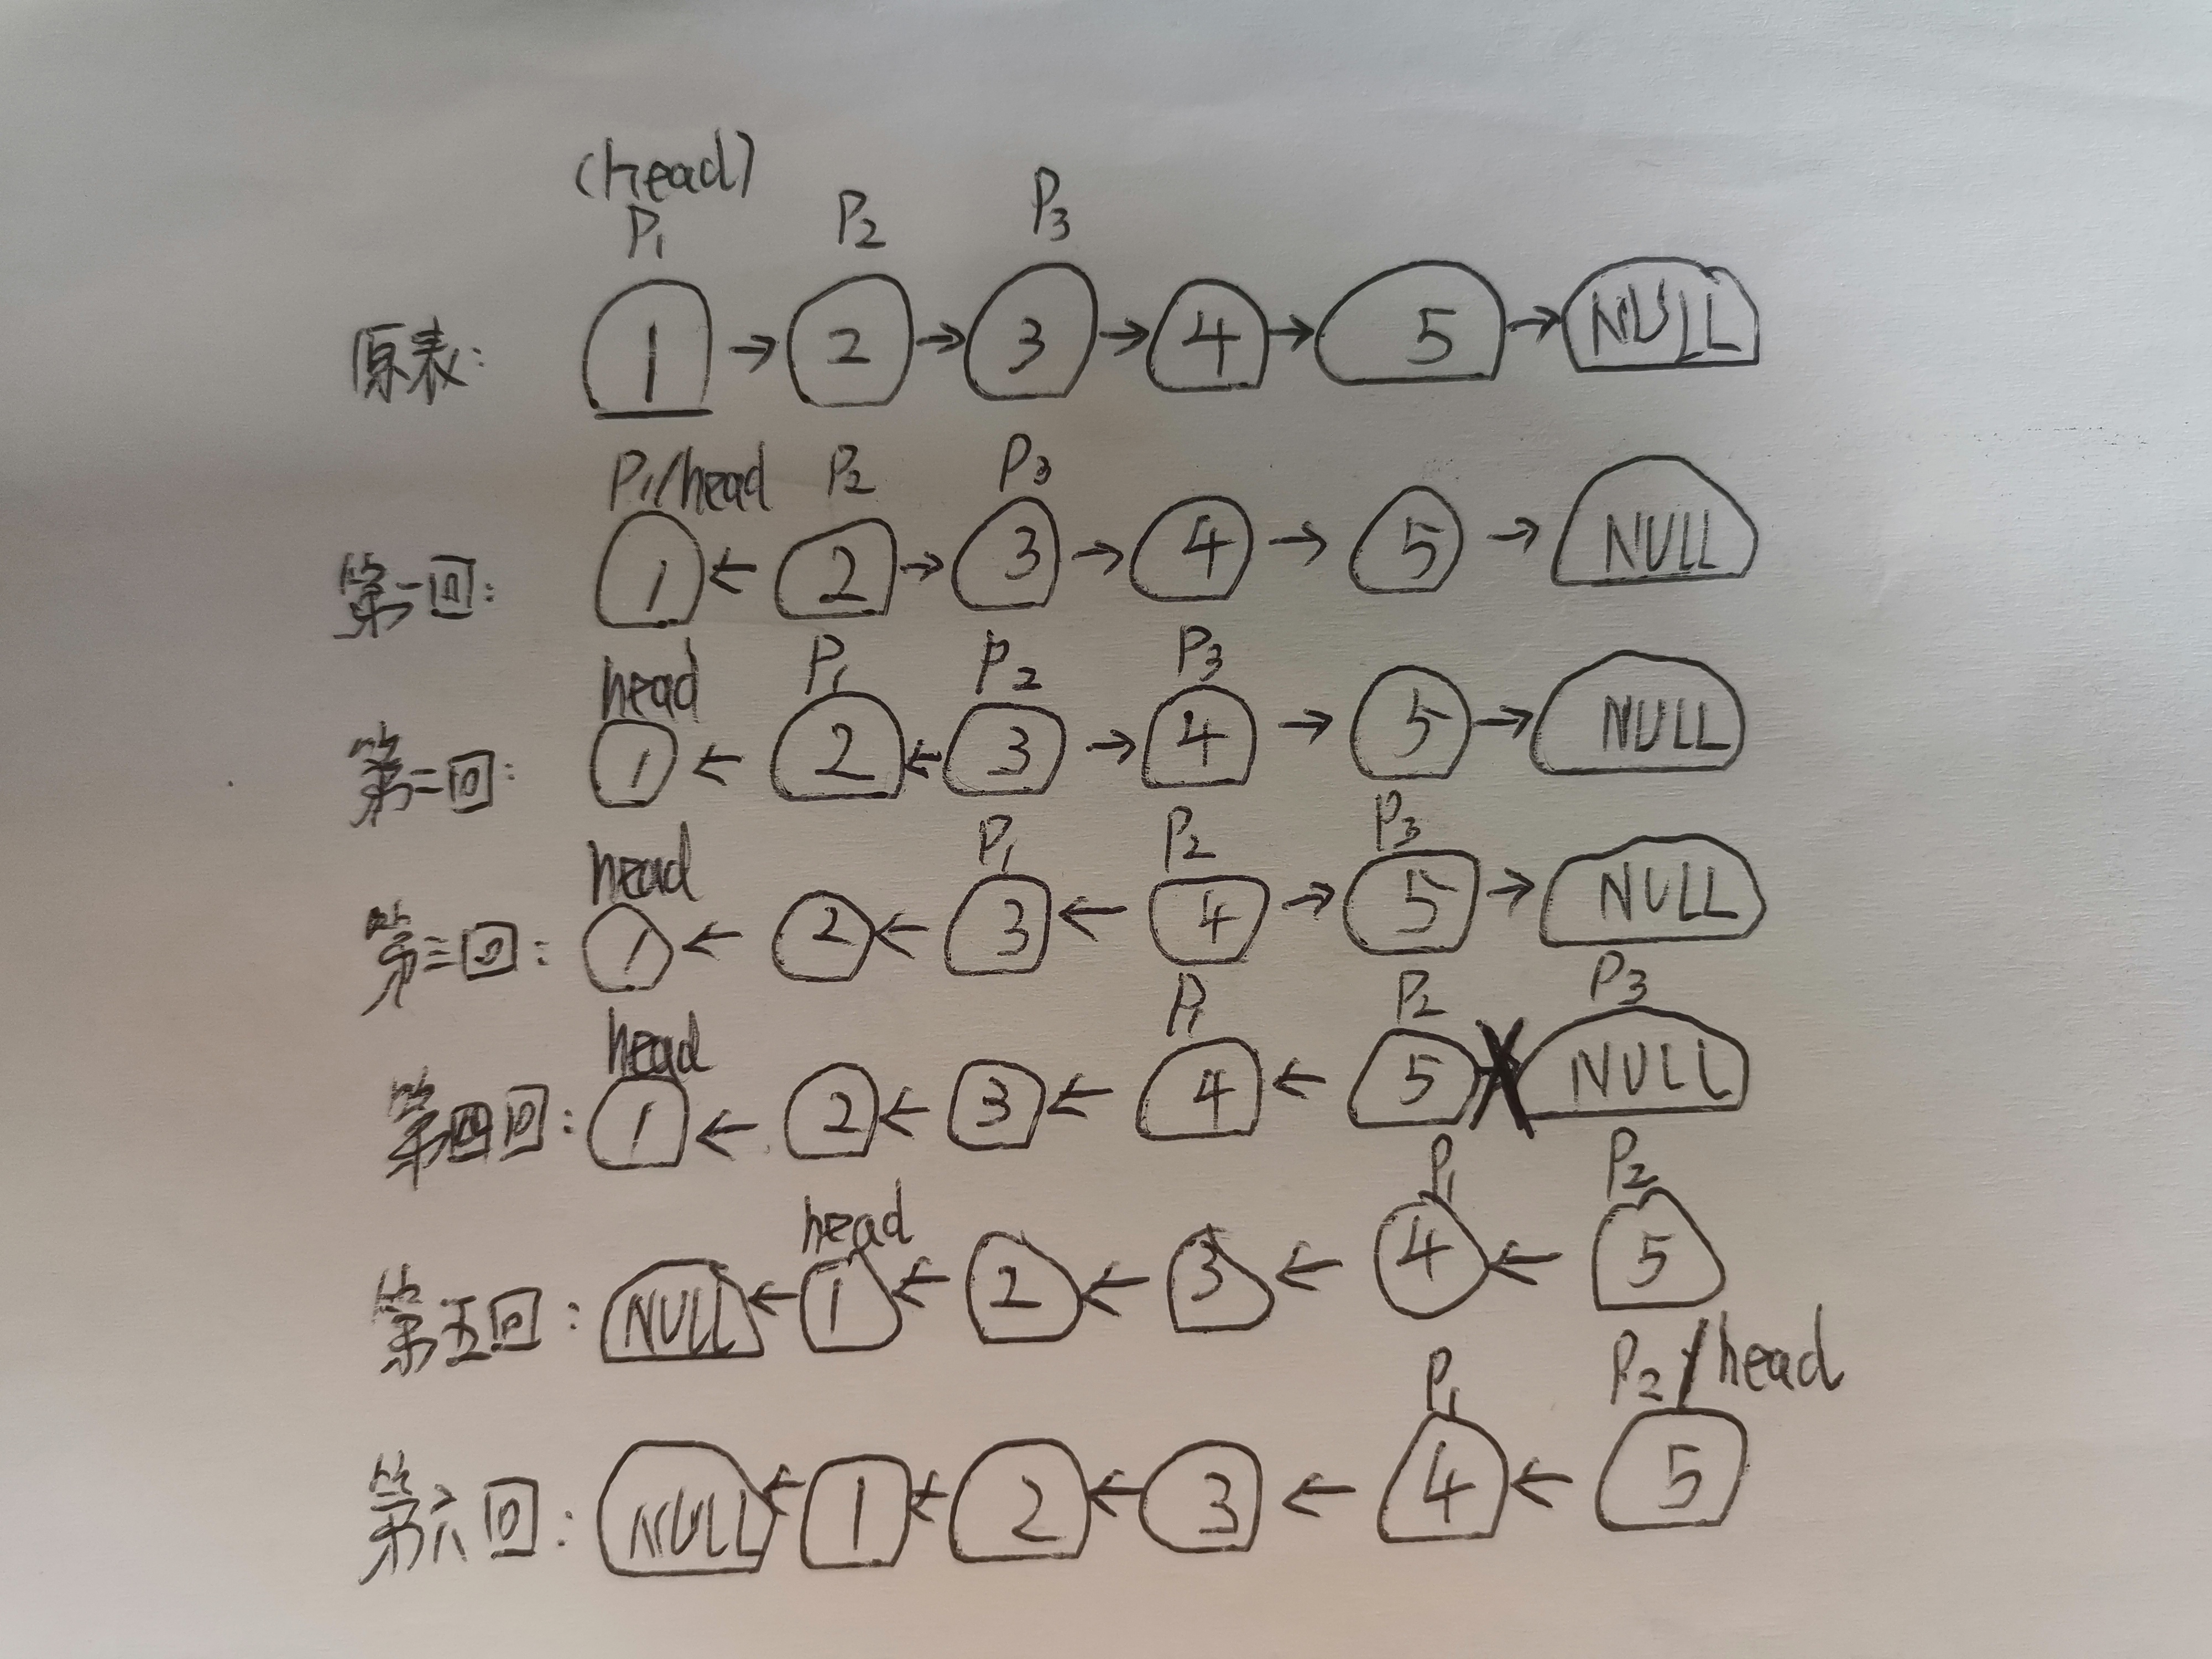 (head)
P1 P2 P3
原表: 1 → 2 → 3 → 4 → 5 → NULL
P1/head P2 P3
第一回: 1 ← 2 → 3 → 4 → 5 → NULL
head P1 P2 P3
第二回: 1 ← 2 ← 3 → 4 → 5 → NULL
head P1 P2 P3
第三回: 1 ← 2 ← 3 ← 4 → 5 → NULL
head P1 P2 P3
第四回: 1 ← 2 ← 3 ← 4 ← 5 X NULL
head P1 P2
第五回: NULL ← 1 ← 2 ← 3 ← 4 ← 5
P1 P2/head
第六回: NULL ← 1 ← 2 ← 3 ← 4 ← 5